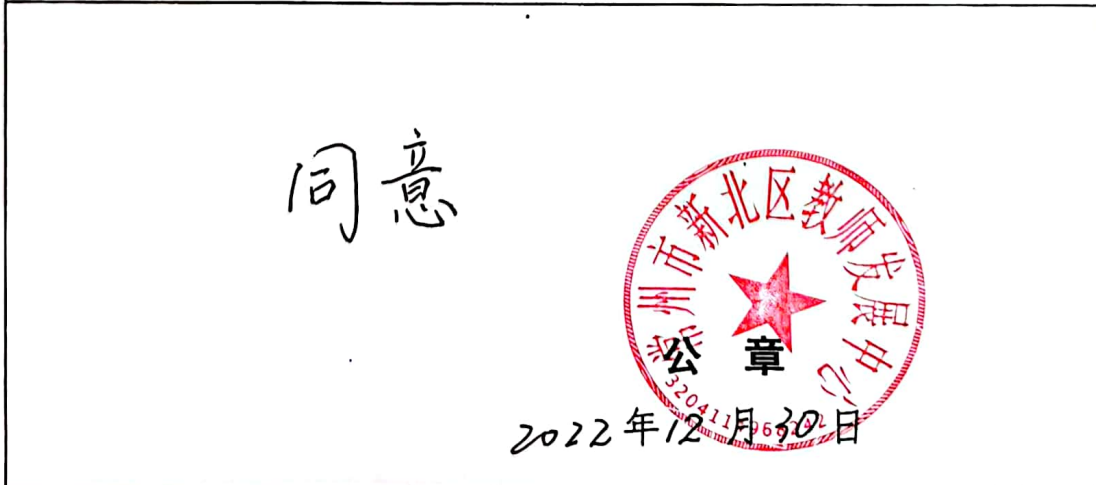 同意
常州市新北区教师发展中心
公 章
2022年12月30日